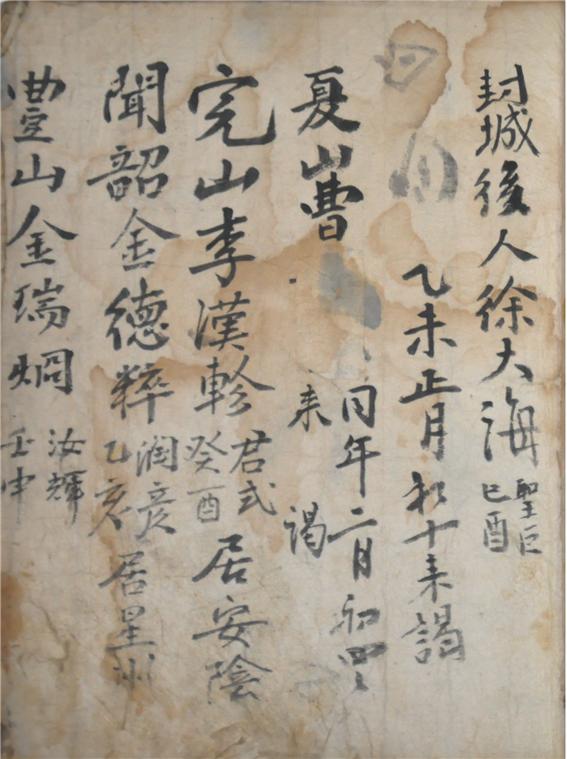 封城後人徐大海 聖臣 己酉
乙未正月初十来謁
夏山曺 同年二月初四 来謁
完山李漢軫 君式 癸酉 居安陰
聞韶金德粹 潤彦 乙亥 居星州
豊山金瑞烱 汝輝 壬申